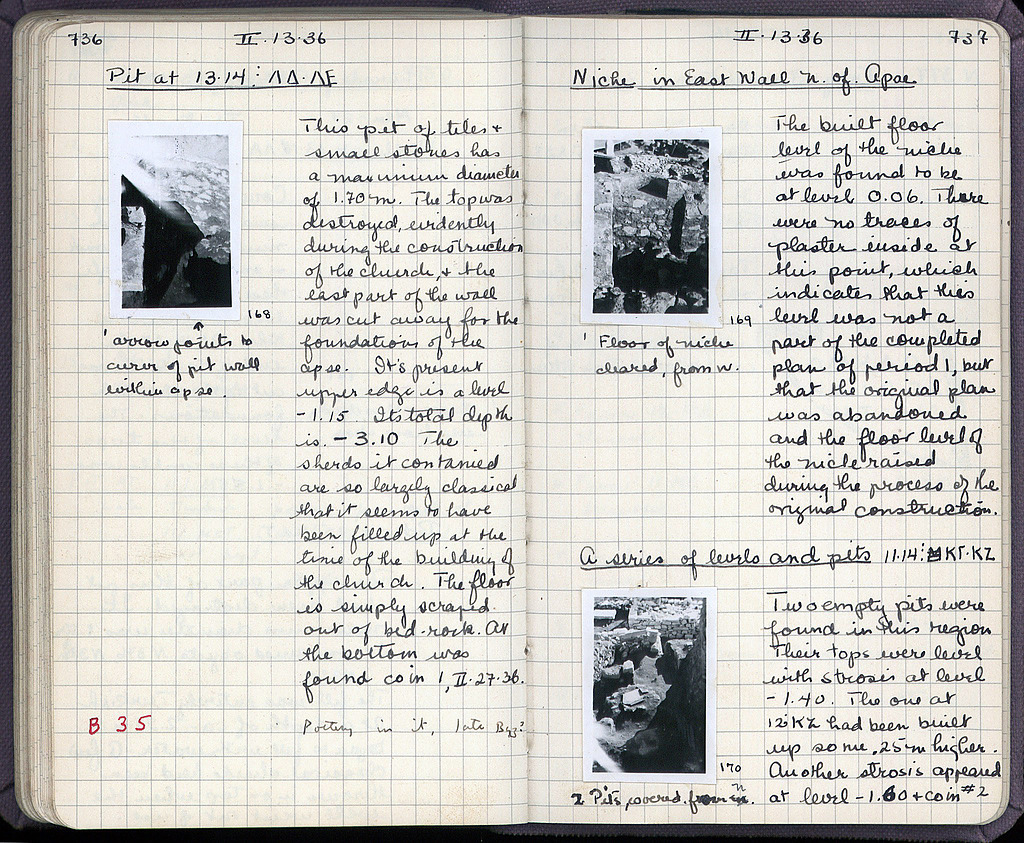 736
II·13·36
Pit at 13·14 : ΛΔ·ΛΕ
This pit of tiles +
small stones has
a maximum diameter
of 1.70 m. The top was
destroyed, evidently
during the construction
of the church, + the
east part of the wall
was cut away for the
foundations of the
apse. It's present
upper edge is a level
-1.15 Its total depth
is. -3.10 The
sherds it contained
are so largely classical
that it seems to have
been filled up at the
time of the building of
the church. The floor
is simply scraped
out of bed-rock. At
the bottom was
found coin 1, II·27·36.
168
' arrow points to
curve of pit wall
within apse.
B 35
Pottery in it, late Byz?
II·13·36
737
Niche in East Wall n. of. Apse
The built floor
level of the niche
was found to be
at level 0.06. There
were no traces of
plaster inside at
this point, which
indicates that this
level was not a
part of the completed
plan of period 1, but
that the original plan
was abandoned
and the floor level of
the niche raised
during the process of the
original construction.
169
' Floor of niche
cleared, from n.
A series of levels and pits 11·14 : ΚΓ·ΚΖ
Two empty pits were
found in this region
Their tops were level
with strosis at level
-1.40. The one at
12:ΚΖ had been built
up some .25 m higher.
Another strosis appeared
at level -1.60 + coin #2
170
2 Pits, from n.